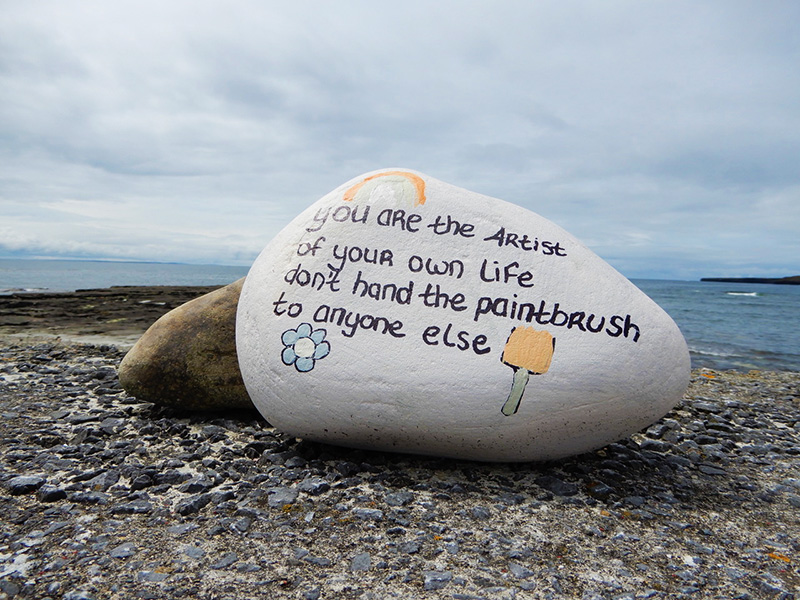 you are the Artist
of your own life
don't hand the paintbrush
to anyone else